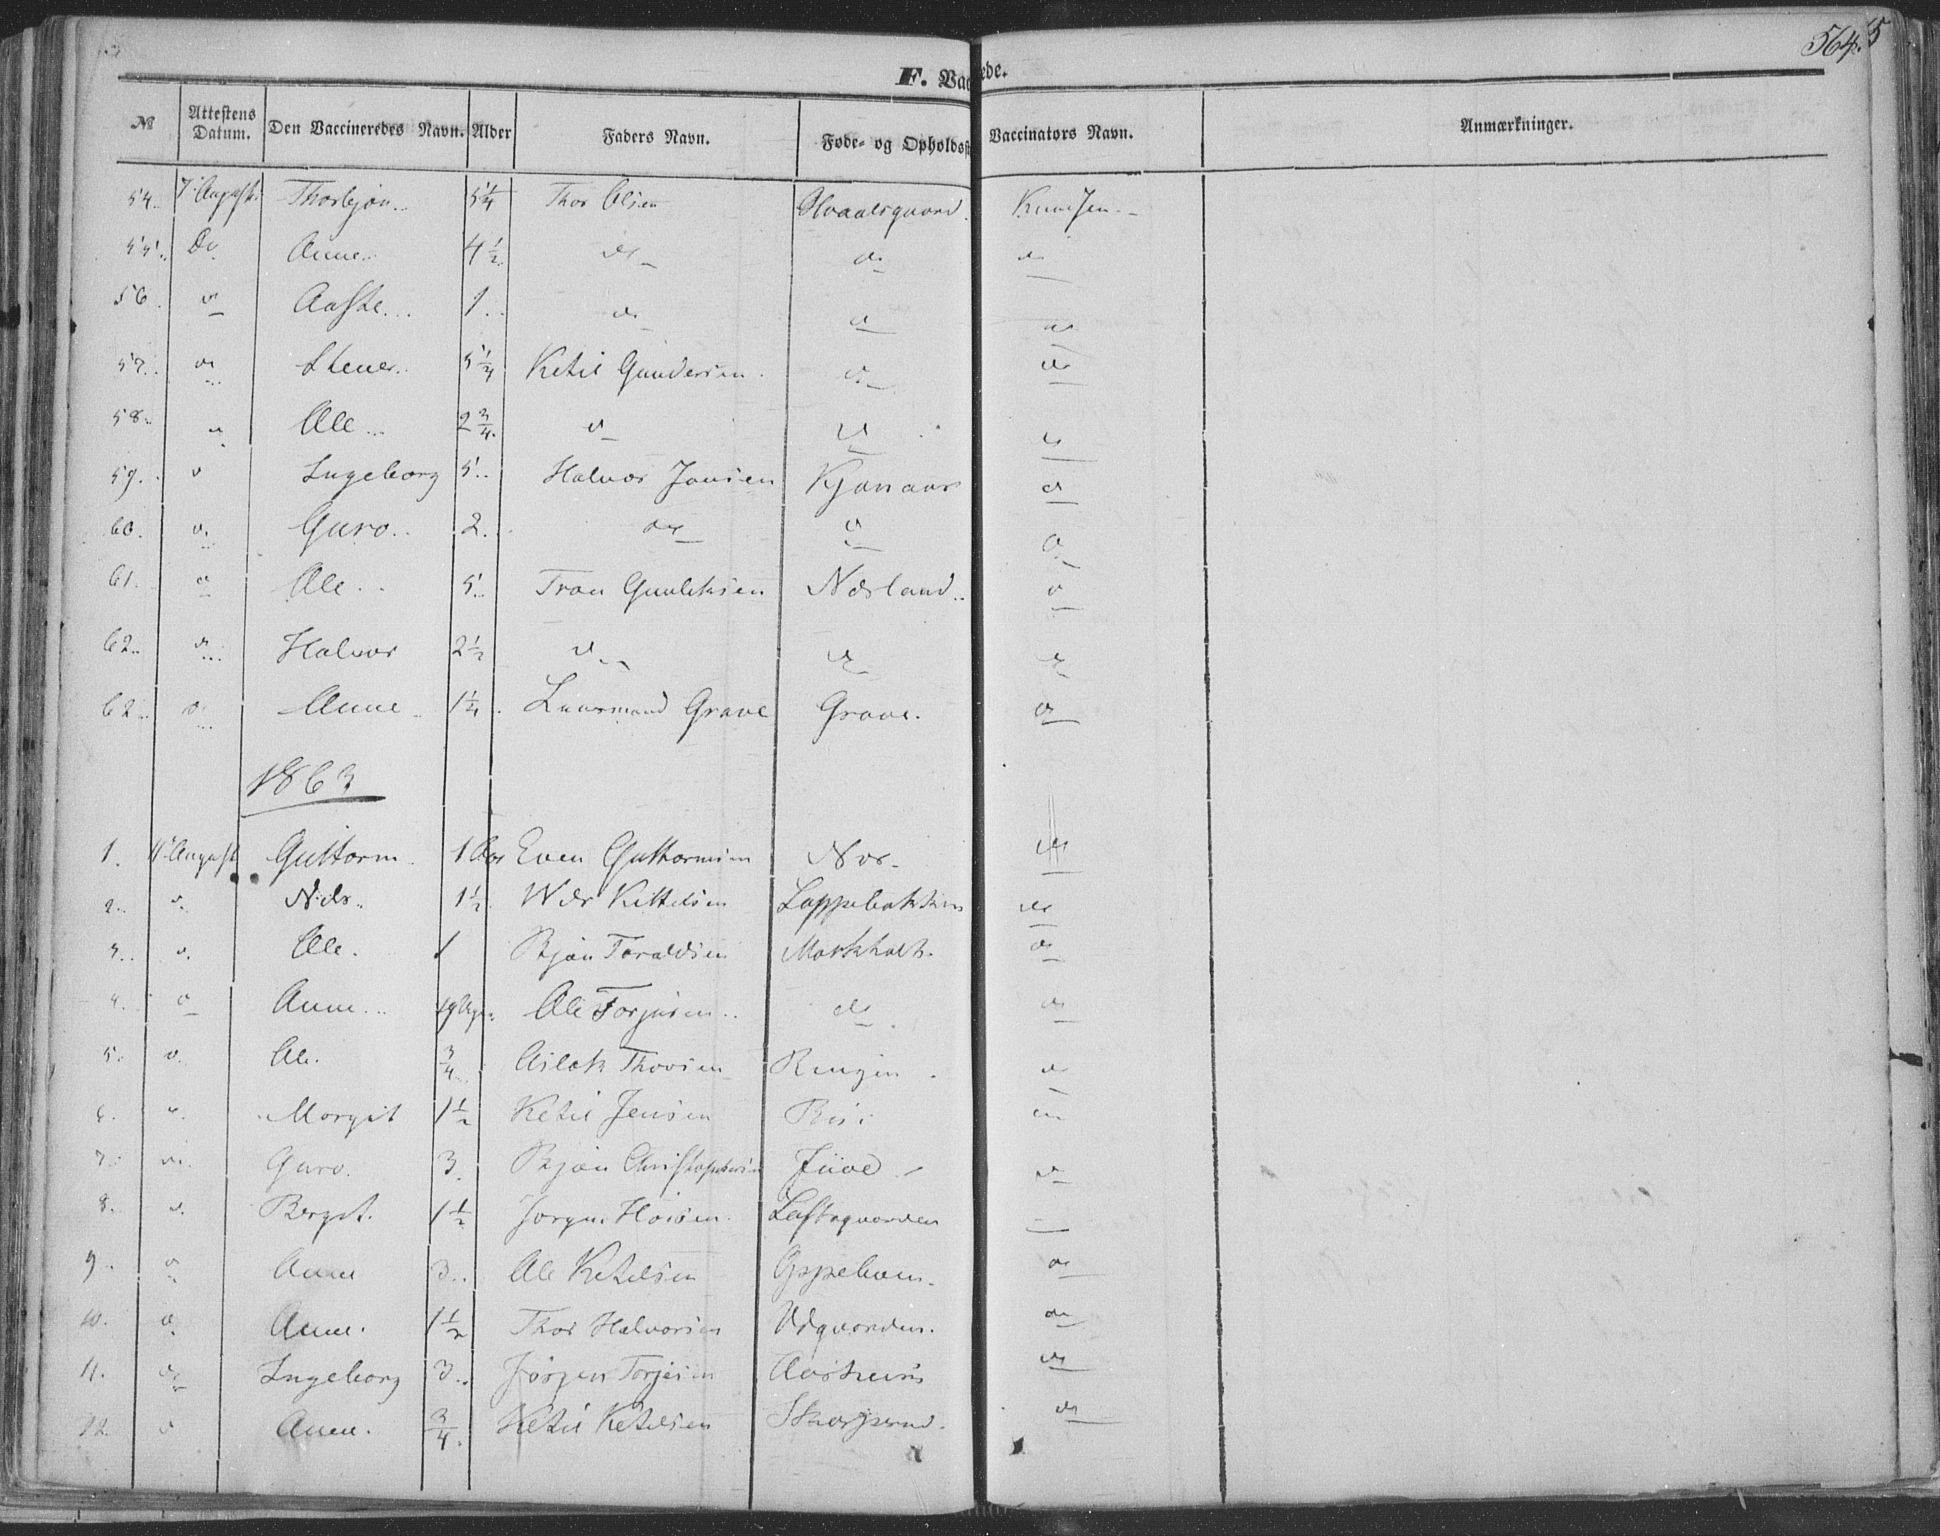 564. 5
F. Vac ede.
№ Attestens Datum. Den Vaccineredes Navn. Alder Faders Navn. Føde- og Opholdsst Vaccinators Navn. Anmærkninger.
54. 7 August. Thorbjøn.. 5 1/4 Thor Olsen Hvaalsgaard. Knudsen.
55. Do Anne.. 4 1/2 do do do
56. do Aaste... 1.. do do do
57.. do Stener.. 5 1/4 Ketil Gundersen. do do
58. do Ole... 2 3/4. do do do
59. do Ingeborg 5.. Halvor Jansen Kjonaas do
60. do Guro.. 2.. do do do
61. do Ole.. 5.. Tron Gunleksen Næsland.. do
62.. do Halvor 2 1/2 do do do
62.. do Anne.. 1 1/4. Launsmand Grave Grave. do
1863
1. 4 August Guttorm. 1 Aar Even Guttormsen Nor. do
2.. do Nils.. 1 1/2. Nils Kittelsen Lappebakken do
3.. do Ole. 1 Bjøn Taraldsen Morkholt. do
4. do Anne... 19 Uger. Ole Torjusen.. do do
5. do Ole. 3/4 Aslak Thovsen Ringin. do
6. do Margit 1 1/2 Ketil Jensen Risi do
7. do Guro. 3. Bjøn Christophersen Juve. do
8. do Bergit. 1 1/2 Jorgen Hansen. Loftsgaarden do
9. do Anne 3.. Ole Ketilsen Oppeboen. do
10. do Anne. 1 1/2 Thor Halvorsen Udgaarden. do
11. do Ingeborg 3.. Jörgen Torjesen do
12. do Anne. 3/4. Ketil Ketilsen do